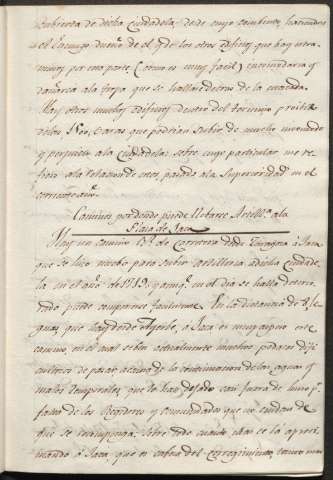 cubierta de dicha ciudadela, desde cuyo combento, haciendose
el Enemigo dueño de el y de los otros edificios que hay extra-
muros por esta parte (como es muy facil) incomodaria y
dañaria a la tropa que se hallare dentro de la
Hay otros muchos edificios dentro del termino prohibi-
do los que podrian servir de mucho incomodo
y perjuicio a la ciudadela: sobre cuyo particular me re-
fiero a la relacion de estos pasada a la Superioridad en el
corriente año.
Caminos por donde puede llebarse Artill.ª a la
Plaza de Jaca
Hay un camino R.l de Carretera desde Zaragoza à Jaca
que se hizo mucho para subir artilleria a dicha ciudade-
la en el año de 1719: y aunq.e en el dia se halla deterio-
rado puede componerse facilmente. En la distancia de 8 le-
guas que hay desde Ayerbe, a Jaca es muy aspero este
camino, en el qual se ben actualmente muchos pedazos difi-
cultosos de pasar acausa de la continuacion de las aguas y
malos temporales, que lo han dejado casi fuera de huso p.r
falta de los Regidores y comunidades que no cuidan de
que se recomponga. Sobre todo cuanto mas se ba aproxi-
mando à Jaca que es cabeza del corregimiento, tanto mas